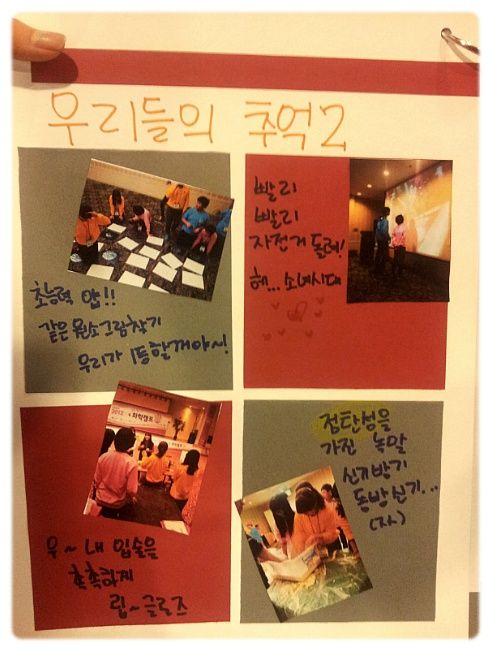 우리들의 추억2
초능력 맵!!
같은 원소그림찾기
우리가 1등할꺼야~!
빨리
빨리
자전거 돌려!
헤... 소녀시대
2012
화학캠프
우~ 내 입술을
촉촉하게
립~글로즈
점탄성을
가진 녹말
신기방기
동방신기...